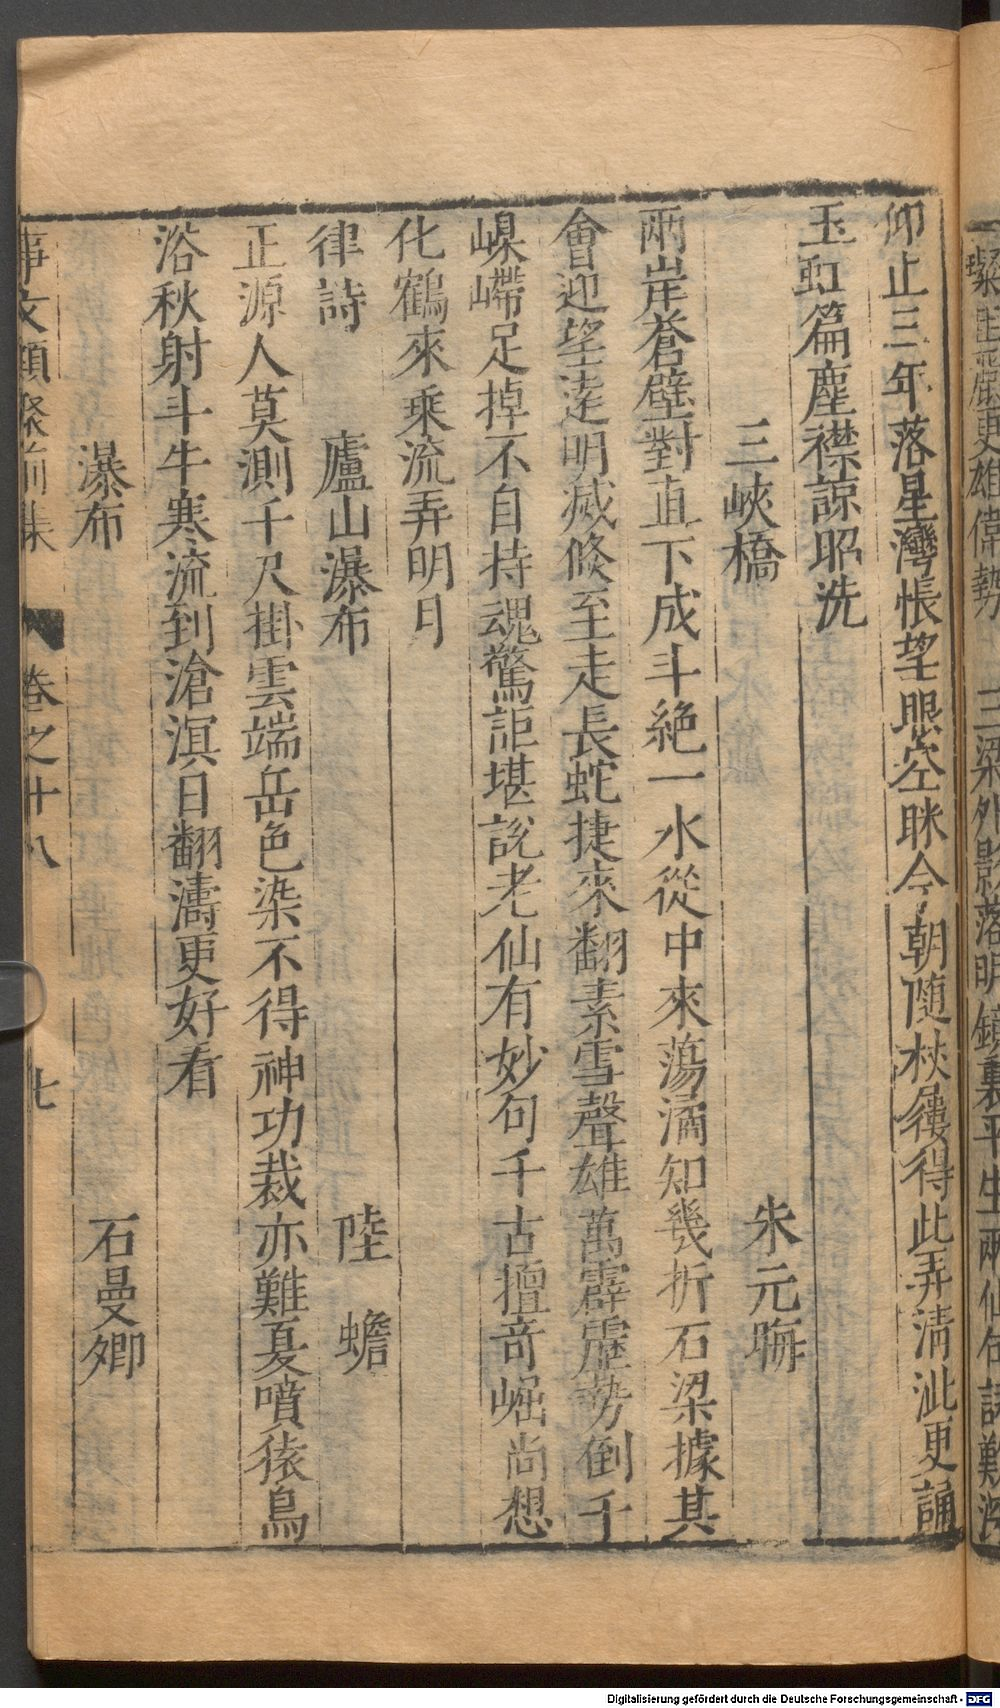 緊 更雄偉勢 三梁外影落明鏡裏平生兩仙句詠難
仰止三年落星灣悵望眼空眯今朝隨杖屨得此弄清泚更誦
玉虹篇塵襟諒昭洗
三峽橋 朱元晦
兩岸蒼壁對直下成斗絶一水從中來蕩潏知幾折石梁據其
會迎望逺明滅倐至走長蛇捷來翻素雪聲雄萬霹靂勢倒千
嵲㠜足掉不自持魂驚詎堪說老仙有妙句千古擅竒崛尚想
化鶴來乘流弄明月
律詩 廬山瀑布 陸蟾
正源人莫測千尺掛雲端岳色染不得神功裁亦難夏噴猿鳥
浴秋射斗牛寒流到滄溟日翻濤更好看
瀑布 石曼卿
事文類聚前集 卷之十八 七
Digitalisierung gefördert durch die Deutsche Forschungsgemeinschaft - DFG